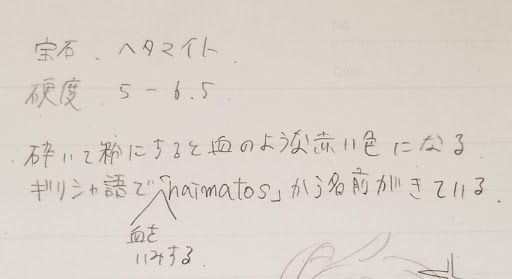 宝石、ヘタマイト
硬度 5-6.5
砕いて粉にすると血のような赤い色になる
ギリシャ語で「haimatos」から名前がきている。
血を
いみする